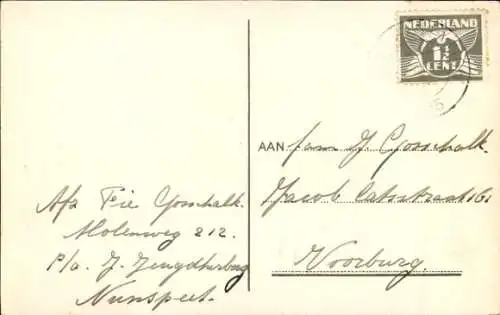 NEDERLAND
1½
CENT
AAN fam J. Gosschalk.
Jacob Catsstraat 161
Voorburg.
Afz Fie Gosschalk.
Molenweg 212.
p/a. J. Jeugdherberg
Nunspeet.